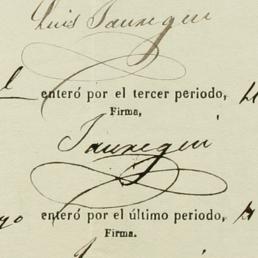 Luis Jauregui
enteró por el tercer periodo,
Firma,
Jauregui
enteró por el último periodo,
Firma.